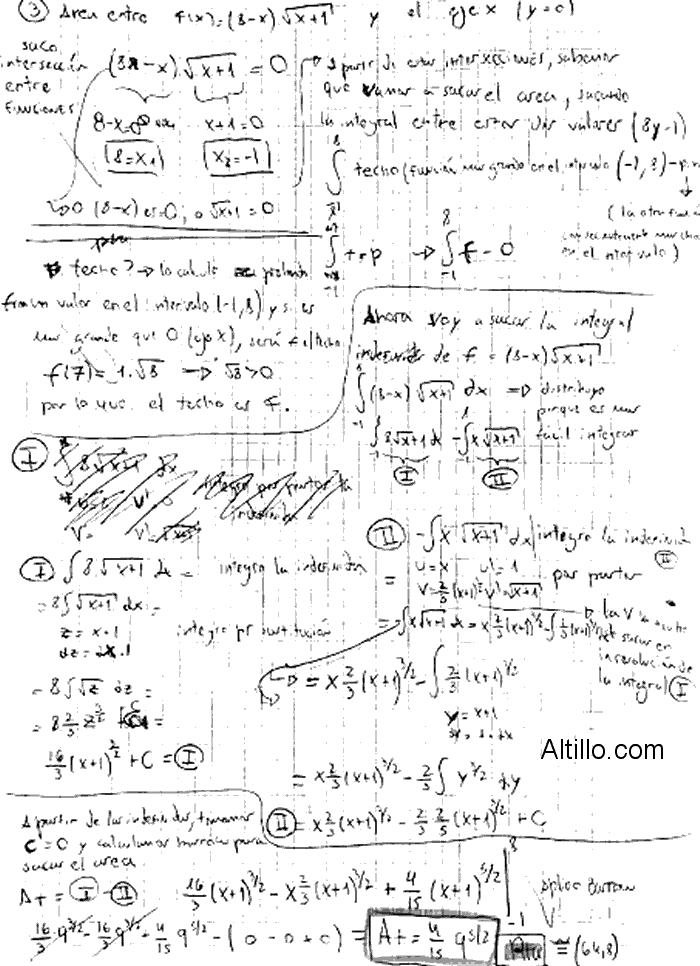 ③ Area entre f(x)=(8-x)√x+1 y el eje x (y=0)
saco
intersección
entre
FUNCIONES
(8-x)√x+1 = 0
8-x=0 x+1=0
8=x₁ x₂=-1
0 (8-x) es=0, o √x+1 = 0
A partir de estas intersecciones, sabemos
que vamos a sacar el area, sacando
la integral entre estos dos valores (8y-1)
∫ techo (función mas grande en el intervalo (-1,8) -
(la otra
en el intervalo)
∫ t-p → ∫₋₁⁸ f - 0
techo? → lo calculo
un valor en el intervalo (-1,8) y si es
mas grande que 0 (eje x), será f el techo
f(7) = 1.√8 → √8>0
por lo que el techo es f.
Ahora voy a sacar la integral
de f = (8-x)√x+1
∫₋₁⁸ (8-x)√x+1 dx ⇒ distribuyo
porque es mas
facil integrar
∫₋₁⁸ 8√x+1 dx - ∫₋₁⁸ x√x+1
Ⅰ Ⅱ
Ⅰ ∫ 8√x+1 dx = integro la indefinida
= 8∫√x+1 dx =
z = x+1 integro por sustitución
dz = dx.1
= 8∫√z dz =
= 8 2/3 z^3/2 + C =
16/3 (x+1)^3/2 + C = Ⅰ
Ⅱ -∫x √x+1 dx integro la indefinida Ⅱ
= u=x u'=1 por partes
v=2/3(x+1)^3/2 v'=√x+1
= ∫x√x+1 dx = x 2/3 (x+1)^3/2 - ∫ 2/3 (x+1)^3/2
la v la
sacar en
la resolución de
la integral Ⅰ
= x 2/3 (x+1)^3/2 - ∫ 2/3 (x+1)^3/2
y = x+1
dy = 1.dx
= x 2/3 (x+1)^3/2 - 2/3 ∫ y^3/2 dy
Altillo.com
Ⅱ = x 2/3 (x+1)^3/2 - 2/3 2/5 (x+1)^5/2 + C
A partir de las indefinidas, tomamos
C=0 y calculamos barrow para
sacar el area
At = Ⅰ - Ⅱ 16/3 (x+1)^3/2 - x 2/3 (x+1)^3/2 + 4/15 (x+1)^5/2 |₋₁⁸
aplico Barrow
16/3 9^3/2 - 16/3 9^3/2 + 4/15 9^5/2 - (0 - 0 + 0) = At = 4/15 9^5/2 ≅ (64,8)